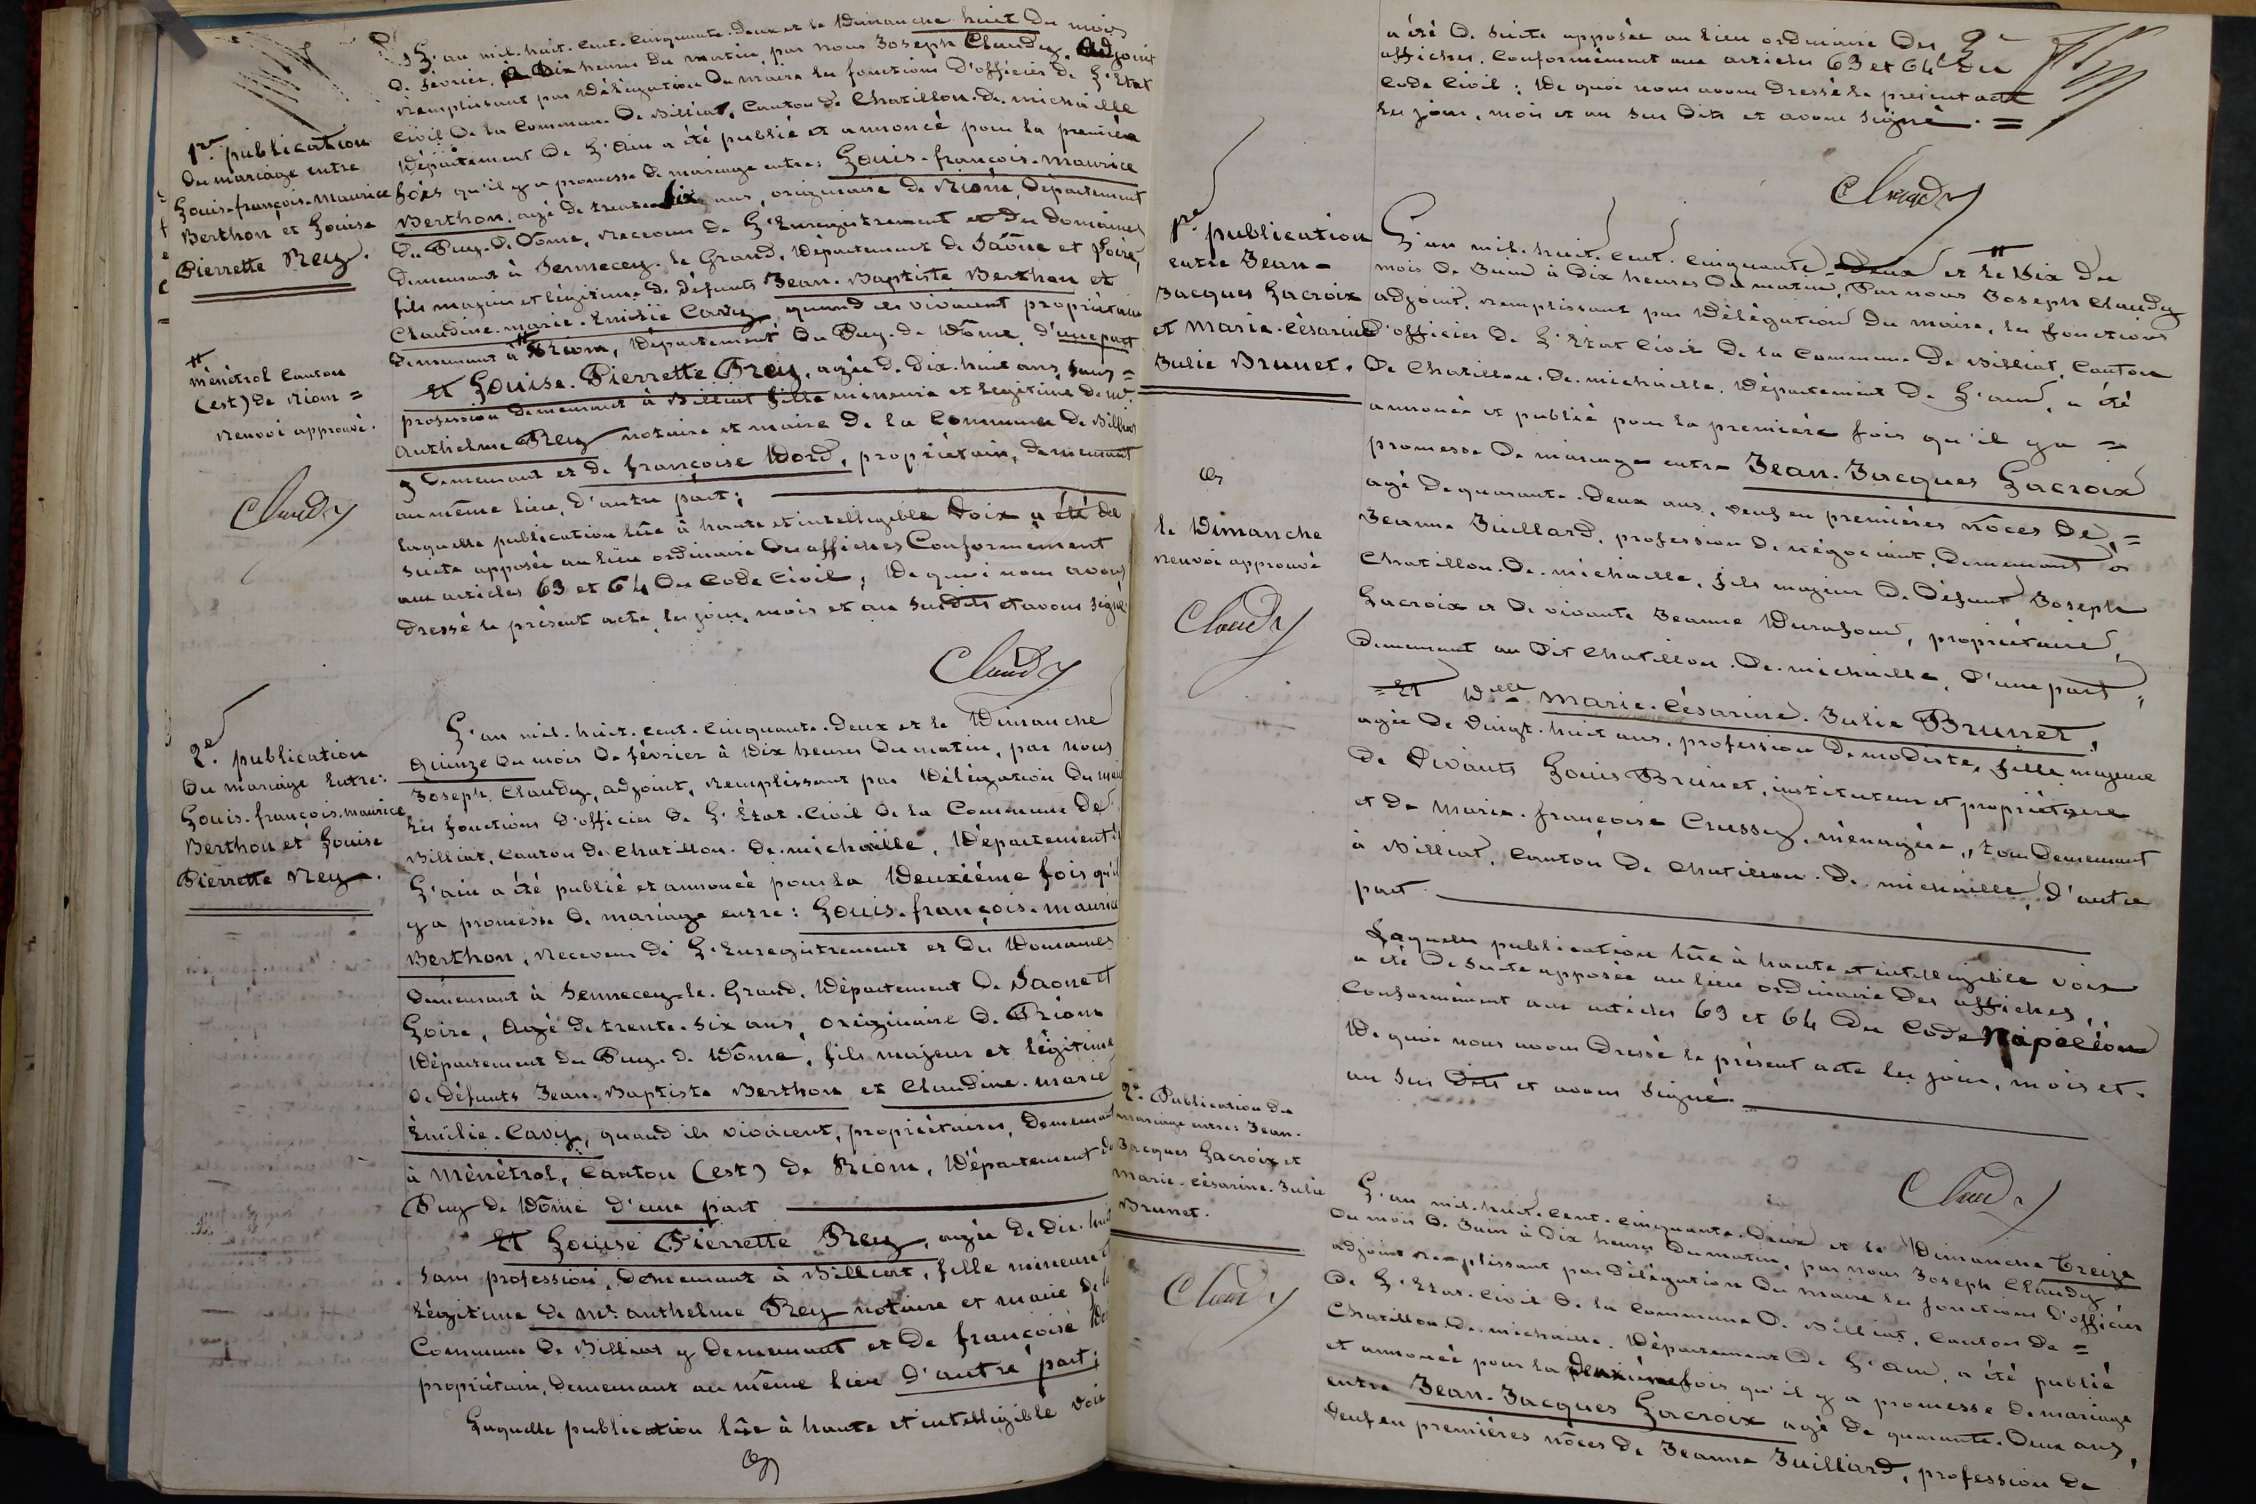 1re publication
du mariage entre
Louis-françois-maurice
Berthon et Louise
Pierrette Rey.
ménétrol Canton
(est) de Riom =
Renvoi approuvé.
Claudy
L'an mil-huit-cent-cinquante-deux et le Dimanche huit du mois
de février, à dix heures du matin, par nous Joseph Claudy, adjoint
Remplissant par Délégation du maire les fonctions d'officier de L'Etat
Civil de la Commune de Billiat, Canton de Chatillon-de-michaille
Département de L'Ain a été publié et annoncé pour la première
fois qu'il y a promesse de mariage entre: Louis-françois-maurice
Berthon, agé de trente six ans, originaire de Riom, Département
du Puy-de-Dôme, Receveur de L'Enregistrement et des Domaines
demeurant à Sennecey-le-Grand, Département de Saône et Loire,
fils majeur et légitime de défunts Jean-Baptiste Berthon et
Claudine-marie-Emilie Cavy, quand ils vivaient propriétaires
demeurant à Riom, Département du Puy-de-Dôme, d'une part
Et Louise-Pierrette Rey, agée de dix-huit ans, sans =
profession demeurant à Billiat fille mineure et légitime de mr
Anthelme Rey notaire et maire de la Commune de Billiat
y demeurant et de françoise Dord, propriétaire, demeurant
au même lieu, d'autre part;
Laquelle publication lue à haute et intelligible voix a été de
suite apposée au lieu ordinaire des affiches Conformément
aux articles 63 et 64 du Code Civil; De quoi nous avons
dressé le présent acte les jour, mois et an susdits et avons signé.
Claudy
2e publication
du mariage Entre:
Louis-françois-maurice
Berthon et Louise
Pierrette Rey.
L'an mil-huit-cent-cinquante-deux et le Dimanche
quinze du mois de février à dix heures du matin, par nous
Joseph Claudy, adjoint, Remplissant par Délégation du maire
les fonctions d'officier de L'Etat-Civil de la Commune de
Billiat, Canton de Chatillon-de-michaille, Département de
L'ain a été publié et annoncé pour la Deuxiéme fois qu'il
y a promesse de mariage entre: Louis-françois-maurice
Berthon, Receveur de L'Enregistrement et des Domaines
demeurant à Sennecey-le-Grand, Département de Saone et
Loire, Agé de trente-six ans, originaire de Riom
Département du Puy-de-Dôme, fils majeur et légitime
de défunts Jean-Baptiste Berthon et Claudine-marie
Emilie-Cavy, quand ils vivaient, propriétaires, Demeurant
à Ménétrol, Canton (est) de Riom, Département du
Puy de Dôme d'une part
Et Louise Pierrette Rey, agée de dix-huit
sans profession, demeurant à Billiat, fille mineure et
légitime de Mr anthelme Rey notaire et maire de la
Commune de Billiat y demeurant et de françoise Dord
propriétaire, demeurant au même lieu d'autre part;
Laquelle publication lue à haute et intelligible voix
a été de suite apposée au lieu ordinaire des
affiches, Conformément aux articles 63 et 64 du
Code Civil; De quoi nous avons dressé le présent acte
les jour, mois et an sus dits et avons signé. =
Claudy
1re publication
entre Jean-
Jacques Lacroix
et Marie-Césarine
Julie Brunet.
le Dimanche
renvoi approuvé
Claudy
L'an mil-huit-cent-cinquante-Deux et le Six du
mois de Juin à Dix heures du matin, Par nous Joseph Claudy
adjoint, remplissant par Délégation du maire, les fonctions
d'officier de L'Etat Civil de la Commune de Billiat, Canton
de Chatillon-de-michaille, Département de L'ain, a été
annoncé et publié pour la première fois qu'il y a =
promesse de mariage entre Jean-Jacques Lacroix
agé de quarante-deux ans, veuf en premières nôces de =
Jeanne Juillard, profession de négociant, Demeurant à
Chatillon-de-michaille, fils majeur de Défunt Joseph
Lacroix et de vivante Jeanne Durafour, propriétaire,
demeurant au dit Chatillon-de-michaille, d'une part,
Et Delle Marie-Césarine-Julie Brunet,
agée de vingt-huit ans, profession de modiste, fille majeure
de vivants Louis Brunet, instituteur et propriétaire
et de Marie-françoise Crussy, ménagère, tous Demeurant
à Billiat, Canton de Chatillon-de-michaille, d'autre
part
Laquelle publication lue à haute et intelligible voix
a été de suite apposée au lieu ordinaire des affiches,
Conformément aux articles 63 et 64 du Code Napoléon
De quoi nous avons dressé le présent acte les jour, mois et
an sus dits et avons signé
Claudy
2e Publication du
mariage entre: Jean-
Jacques Lacroix et
Marie-Césarine-Julie
Brunet.
Claudy
L'an mil-huit-cent-cinquante-Deux et le Dimanche Treize
du mois de Juin à Dix heures du matin, par nous Joseph Claudy
adjoint remplissant par délégation du maire les fonctions d'officier
de L'Etat-Civil de la Commune de Billiat, Canton de =
Chatillon-de-michaille, Département de L'ain, a été publié
et annoncé pour la deuxième fois qu'il y a promesse de mariage
entre Jean-Jacques Lacroix agé de quarante-Deux ans,
veuf en premières nôces de Jeanne Juillard, profession de